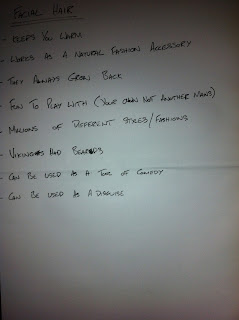 FACIAL HAIR
- KEEPS YOU WARM
- WORKS AS A NATURAL FASHION ACCESSORY
- THEY ALWAYS GROW BACK
- FUN TO PLAY WITH (YOUR OWN NOT ANOTHER MANS)
- MILLIONS OF DIFFERENT STYLES/FASHIONS
- VIKINGS HAD BEARDS
- CAN BE USED AS A TOOL OF COMEDY
- CAN BE USED AS A DISGUISE